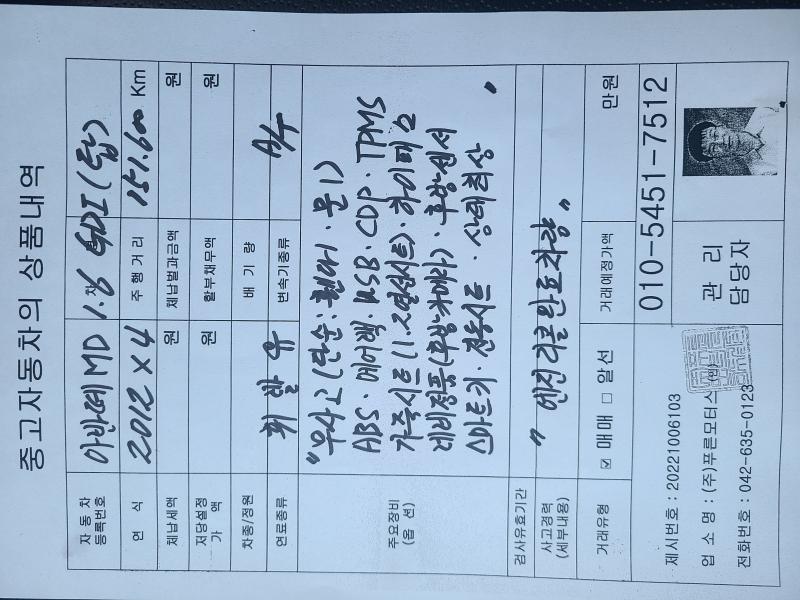 중고자동차의 상품내역
자동차 등록번호 아반떼 MD 1.6 GDI (탑)
연 식 2012 X 4 주행거리 151.600 Km
체납세액 원 체납벌과금액 원
저당설정가액 원 할부채무액 원
차종/정원 배 기 량
연료종류 휘발유 변속기종류 A/T
주요장비 (옵 션)
"무사고 (단순: 휀다1·문1)
ABS·에어백·USB·CDP·TPMS
가죽시트(1.2열열선시트)·하이패스
네비정품(후방카메라)·후방센서
스마트키·전동시트·상태최상 "
검사유효기간
사고경력 (세부내용) " 엔진리콜완료차량 "
거래유형 ☑ 매매 □ 알선 거래예정가액 만원
제시번호 : 20221006103
업 소 명 : (주)푸른모터스 (인)
전화번호 : 042-635-0123
관 리
담당자
010-5451-7512